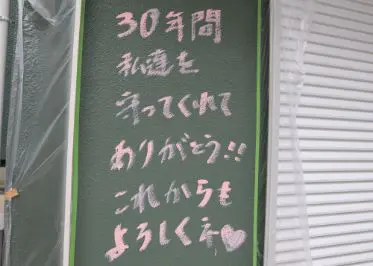 30年間
私達を
守ってくれて
ありがとう!!
これからも
よろしくネ♥